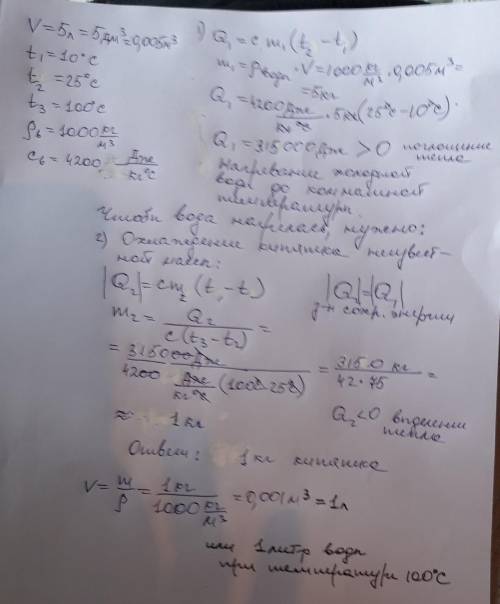 V=5л=5дм³=0,005м³
t₁=10°C
t₂=25°C
t₃=100°C
ρв=1000 кг/м³
cв=4200 Дж/кг°C
1) Q₁=c m₁(t₂-t₁)
m₁=ρводы·V=1000 кг/м³·0,005м³=
=5кг
Q₁=4200 Дж/кг°C·5кг(25°C-10°C)
Q₁=315000Дж>0 поглощение
тепла
нагревание холодной
воды до комнатной
температуры.
Чтобы вода нагрелась, нужно:
2) Охлаждение кипятка неизвест-
ной массы:
|Q₂|=cm₂(t₃-t₂) |Q₂|=|Q₁|
з-н сохр. энергии
m₂=Q₂/c(t₃-t₂)=
=315000Дж/4200 Дж/кг°C(100-25°C)=3150 кг/42·75=
≈1кг
Q₂<0 выделение
тепла
Ответ: 1кг кипятка
V=m/ρ=1кг/1000 кг/м³=0,001м³=1л
или 1литр воды
при температуре 100°C